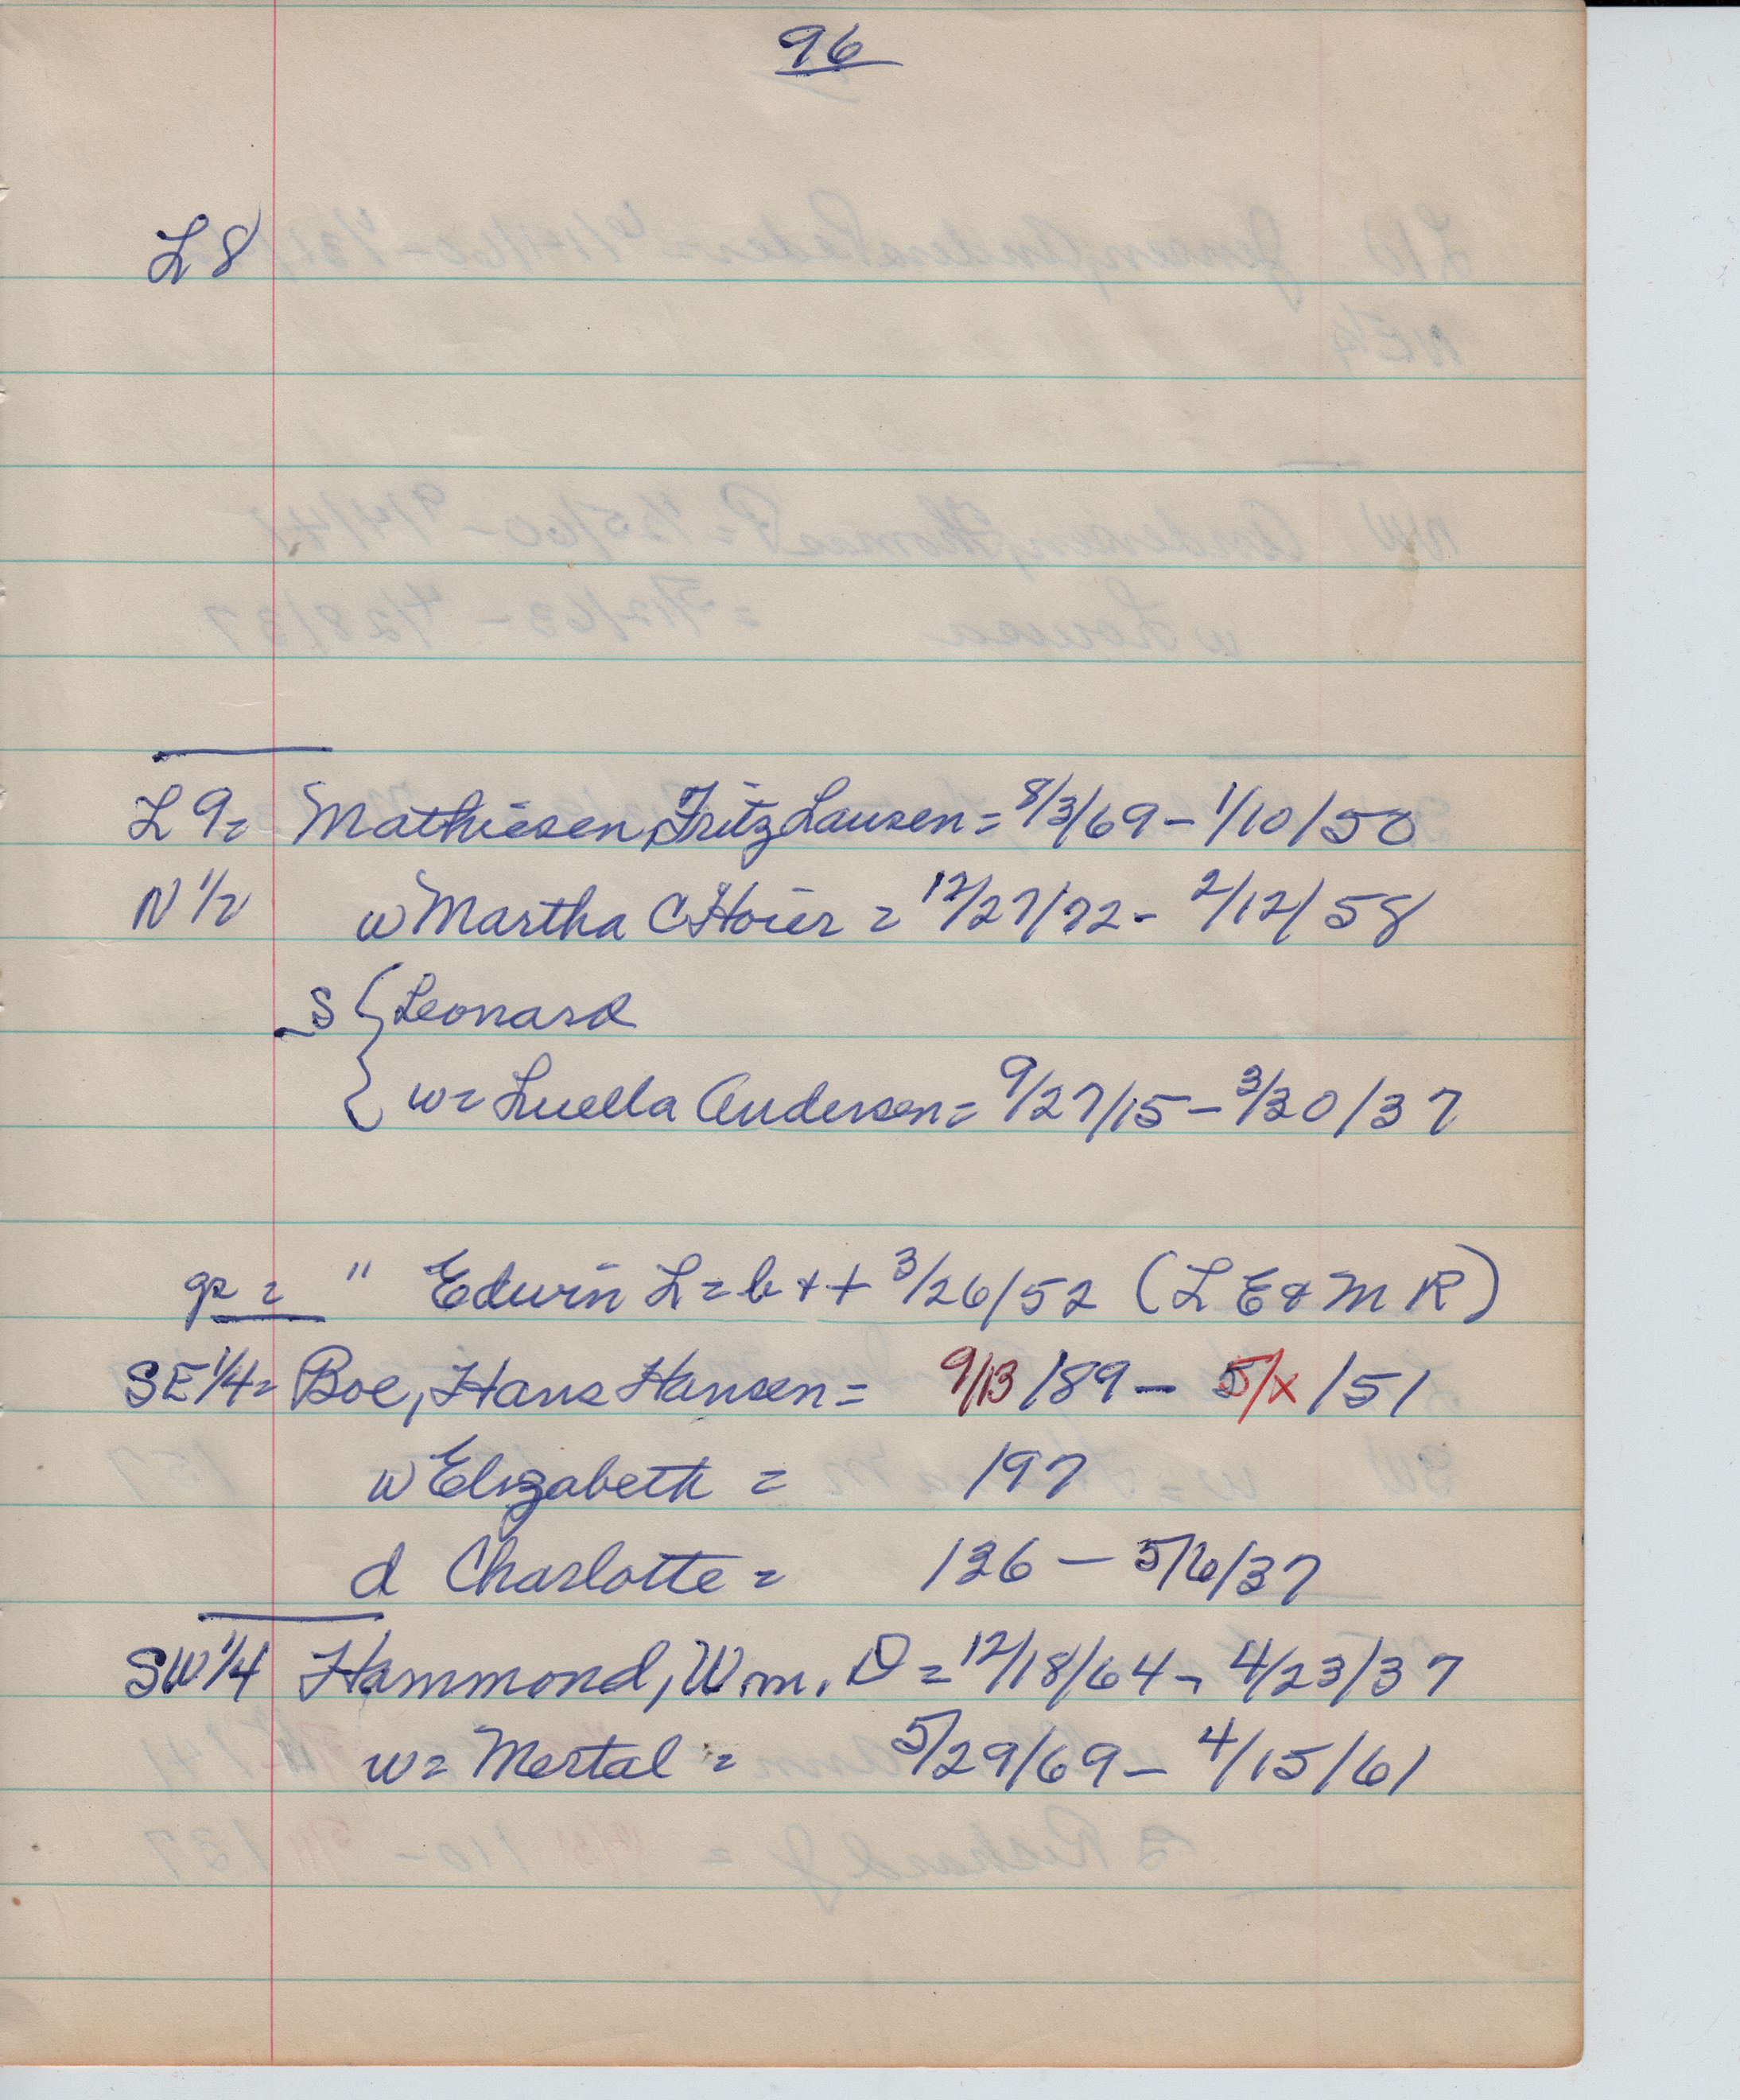 96
L8
L9= Mathiesen, Fritz Lausen = 8/3/69 - 1/10/50
N 1/2 w Martha C Hoier = 12/27/72 - 2/12/58
S { Leonard
w= Luella Andersen = 9/27/15 - 3/20/37
gs = " Edwin L = b + + 3/26/52 (L E & M R)
SE 1/4= Boe, Hans Hansen = 9/13/89 - 5/x/51
w Elizabeth = 197
d Charlotte = 136 - 5/6/37
SW 1/4 Hammond, Wm. D = 12/18/64 - 4/23/37
w= Mertal = 5/29/69 - 4/15/61